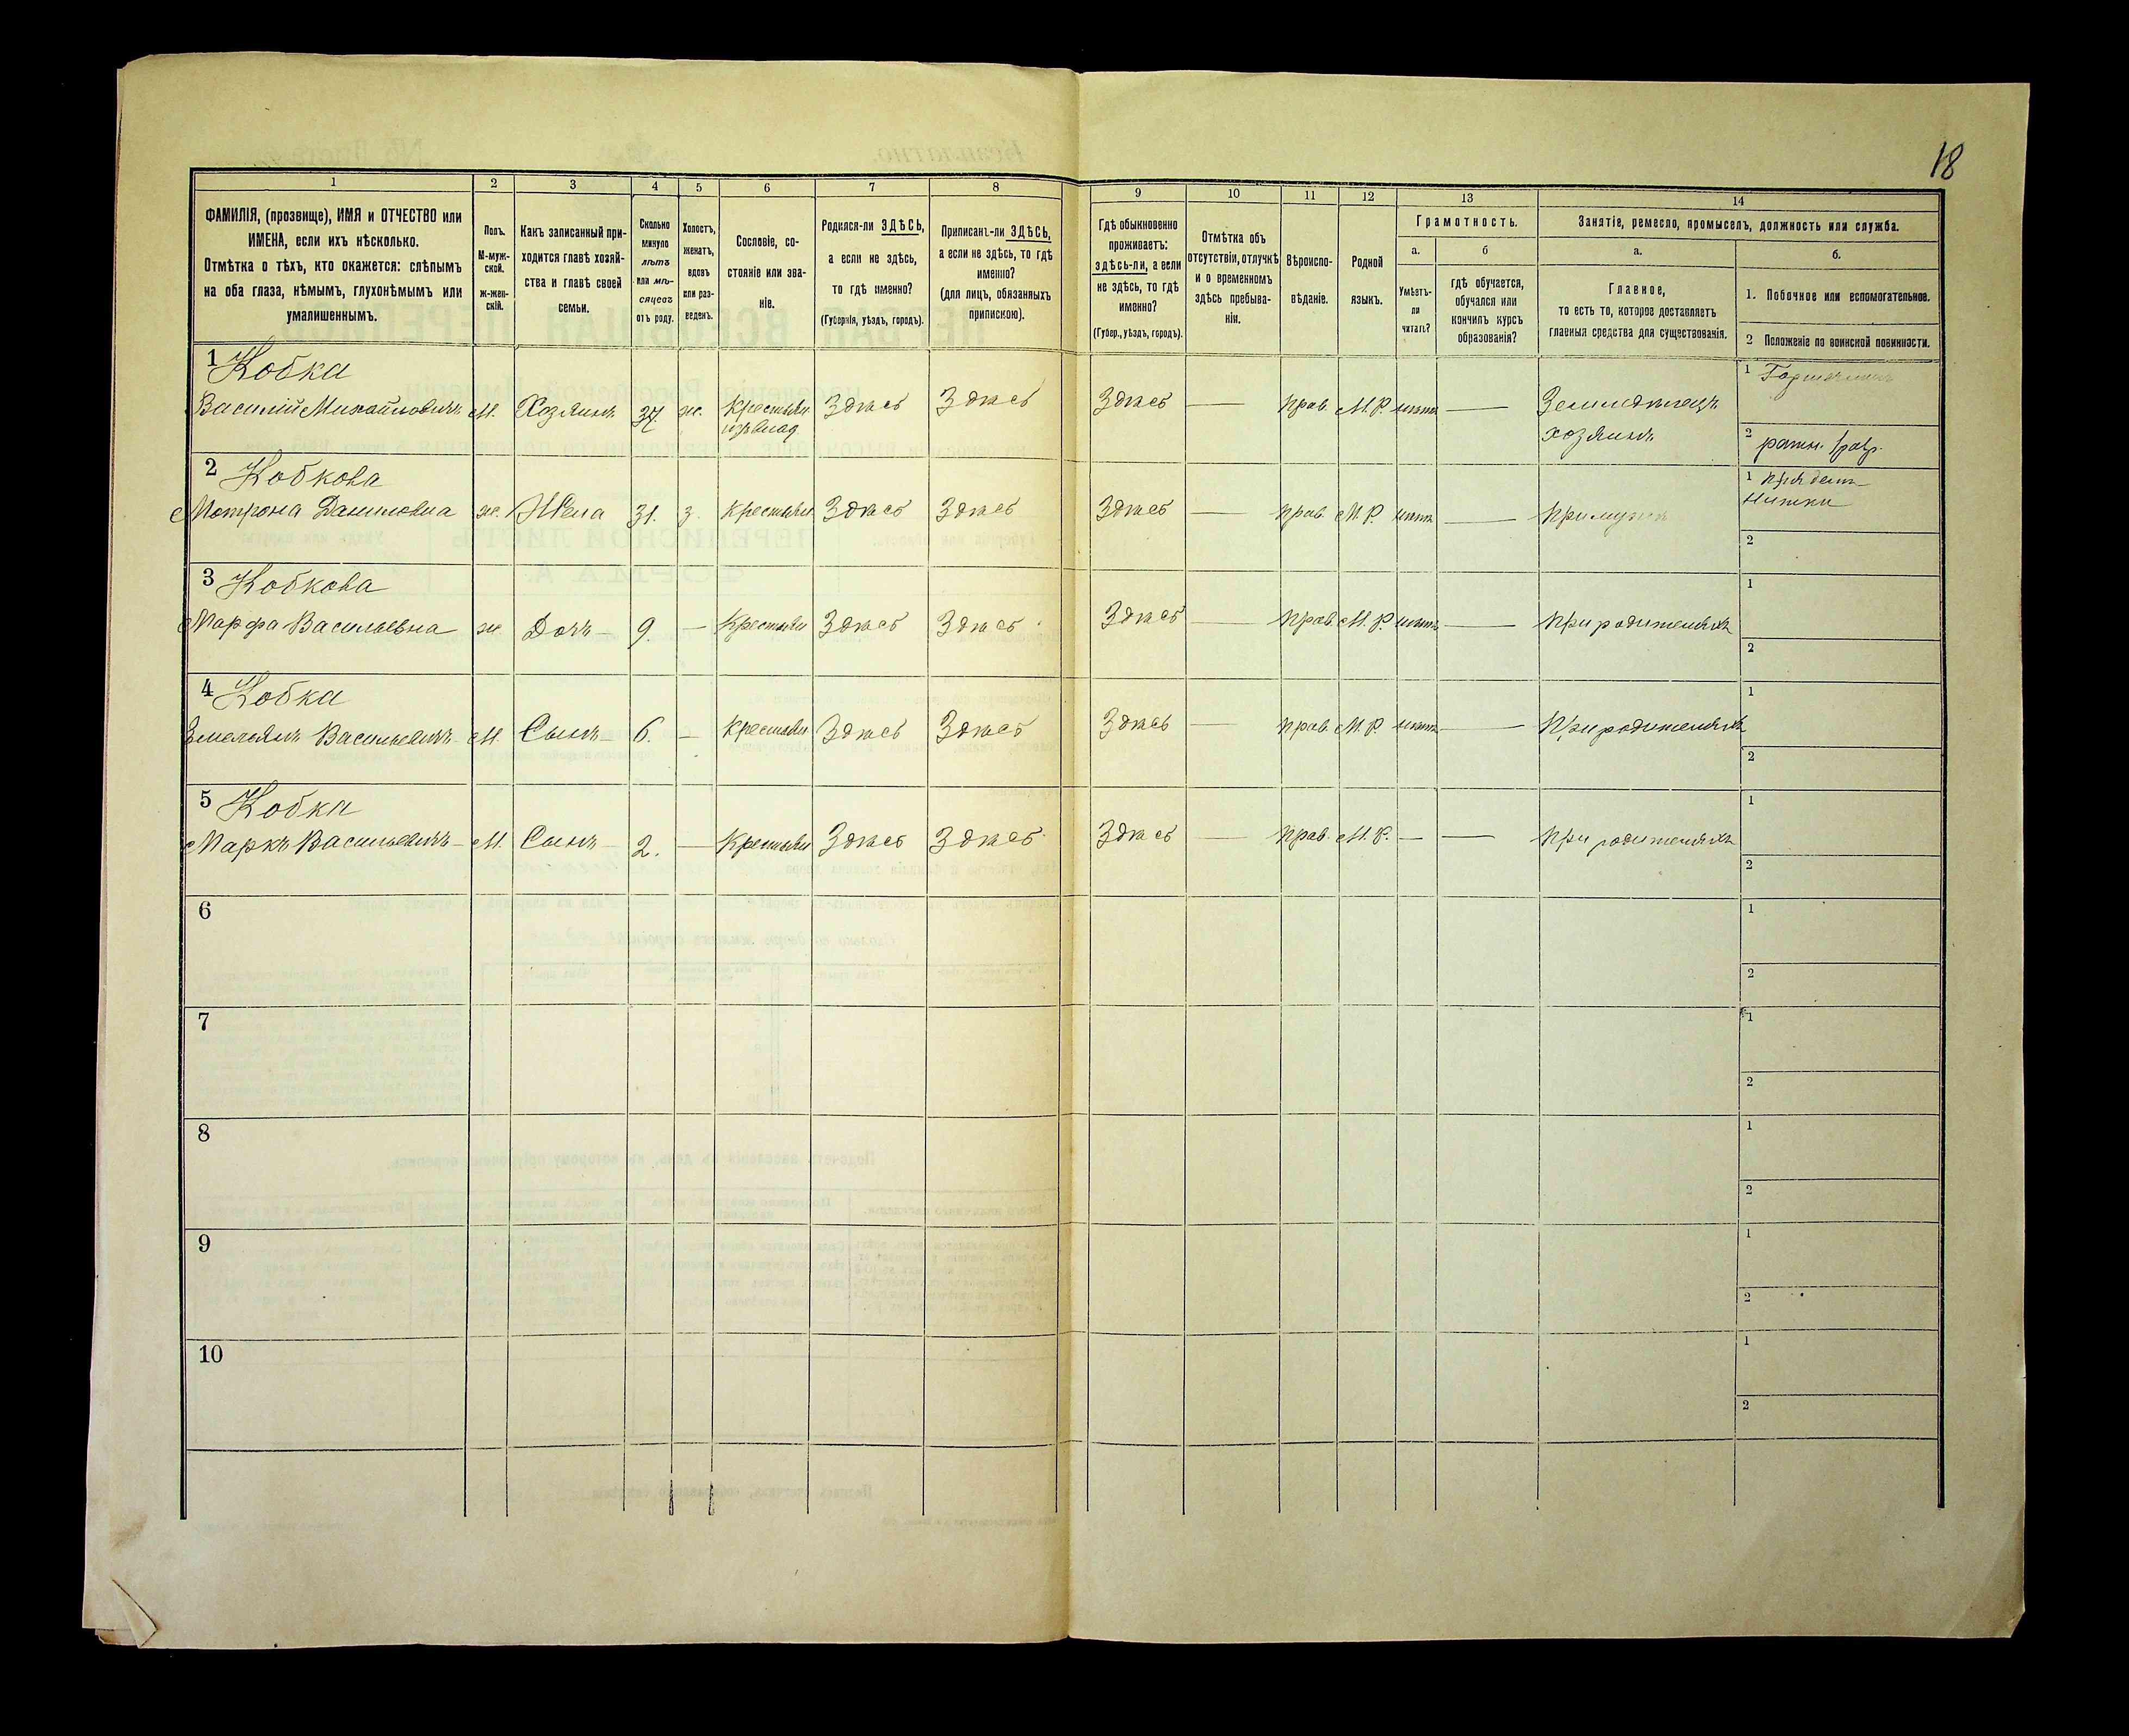 18
1 2 3 4 5 6 7 8 9 10 11 12 13 14
ФАМИЛІЯ, (прозвище), ИМЯ и ОТЧЕСТВО или
ИМЕНА, если ихъ нѣсколько.
Отмѣтка о тѣхъ, кто окажется: слѣпымъ
на оба глаза, нѣмымъ, глухонѣмымъ или
умалишеннымъ.
Полъ.
М-муж-
ской.
ж-жен-
скій.
Какъ записанный при-
ходится главѣ хозяй-
ства и главѣ своей
семьи.
Сколько
минуло
лѣтъ
или мѣ-
сяцевъ
отъ роду.
Холостъ,
женатъ,
вдовъ
или раз-
веденъ.
Сословіе, со-
стояніе или зва-
ніе.
Родился-ли ЗДѢСЬ,
а если не здѣсь,
то гдѣ именно?
(Губернія, уѣздъ, городъ).
Приписанъ-ли ЗДѢСЬ,
а если не здѣсь, то гдѣ
именно?
(для лицъ, обязанныхъ
припискою).
Гдѣ обыкновенно
проживаетъ:
здѣсь-ли, а если
не здѣсь, то гдѣ
именно?
(Губер., уѣздъ, городъ).
Отмѣтка объ
отсутствіи, отлучкѣ
и о временномъ
здѣсь пребыва-
ніи.
Вѣроиспо-
вѣданіе.
Родной
языкъ.
Грамотность.
а.
Умѣетъ-
ли
читать?
б
гдѣ обучается,
обучался или
кончилъ курсъ
образованія?
Занятіе, ремесло, промыселъ, должность или служба.
а.
Главное,
то есть то, которое доставляетъ
главныя средства для существованія.
б.
1. Побочное или вспомогательное.
2 Положеніе по воинской повинности.
1 Кобка
Василій Михайловичъ М. Хозяинъ 37. ж. Крестьян. Здѣсь Здѣсь Здѣсь — прав. М.Р. нѣтъ — Земледѣлецъ
хозяинъ
1
2 ратн. 1 разр.
2 Кобкова
Мотрона Даниловна ж. Жена 31. з. крестьян Здѣсь Здѣсь Здѣсь — прав. М.Р. нѣтъ — При мужѣ
1
нитки
2
3 Кобкова
Марфа Васильевна ж Дочь 9. — Крестьян Здѣсь Здѣсь Здѣсь — прав. М.Р. нѣтъ — При родителяхъ
1
2
4 Кобка
Емельянъ Васильевичъ М. Сынъ 6. — Крестьян Здѣсь Здѣсь Здѣсь — прав. М.Р. нѣтъ — При родителяхъ
1
2
5 Кобка
Маркъ Васильевичъ М. Сынъ 2. — Крестьян Здѣсь Здѣсь Здѣсь — прав. М.Р. — — При родителяхъ
1
2
6
1
2
7
1
2
8
1
2
9
1
2
10
1
2